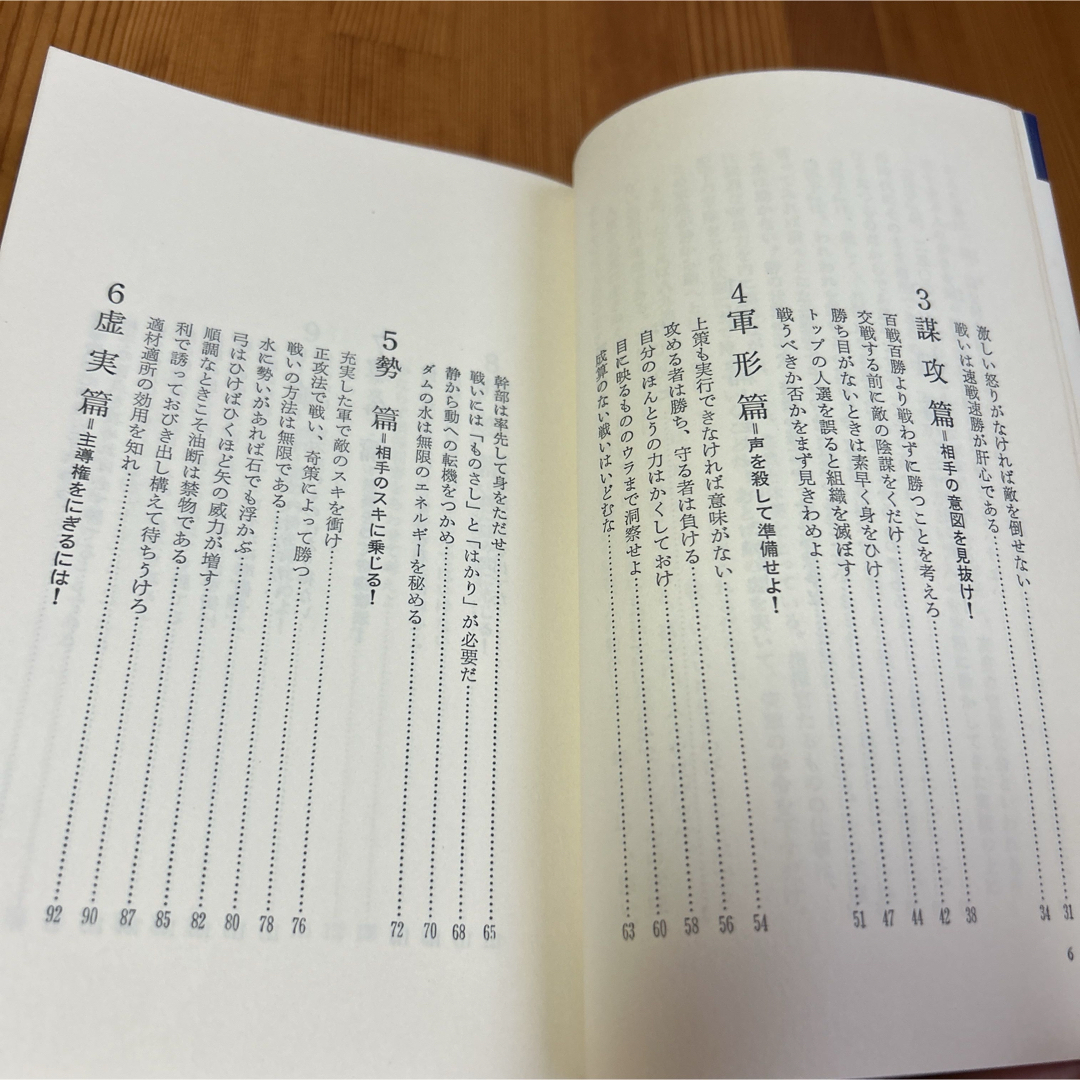 激しい怒りがなければ敵を倒せない……31
戦いは速戦速勝が肝心である……34
3 謀攻篇=相手の意図を見抜け!
百戦百勝より戦わずに勝つことを考えろ……38
交戦する前に敵の陰謀をくだけ……42
勝ち目がないときは素早く身をひけ……44
トップの人選を誤ると組織を滅ぼす……47
戦うべきか否かをまず見きわめよ……51
4 軍形篇=声を殺して準備せよ!
上策も実行できなければ意味がない……54
攻める者は勝ち、守る者は負ける……56
自分のほんとうの力はかくしておけ……58
目に映るもののウラまで洞察せよ……60
成算のない戦いはいどむな……63
6
幹部は率先して身をただせ……65
戦いには「ものさし」と「はかり」が必要だ……68
静から動への転機をつかめ……70
ダムの水は無限のエネルギーを秘める……72
5 勢篇=相手のスキに乗じる!
充実した軍で敵のスキを衝け……76
正攻法で戦い、奇策によって勝つ……78
戦いの方法は無限である……80
水に勢いがあれば石でも浮かぶ……82
弓はひけばひくほど矢の威力が増す……85
順調なときこそ油断は禁物である……87
利で誘っておびき出し構えて待ちうけろ……90
適材適所の効用を知れ……92
6 虚実篇=主導権をにぎるには!